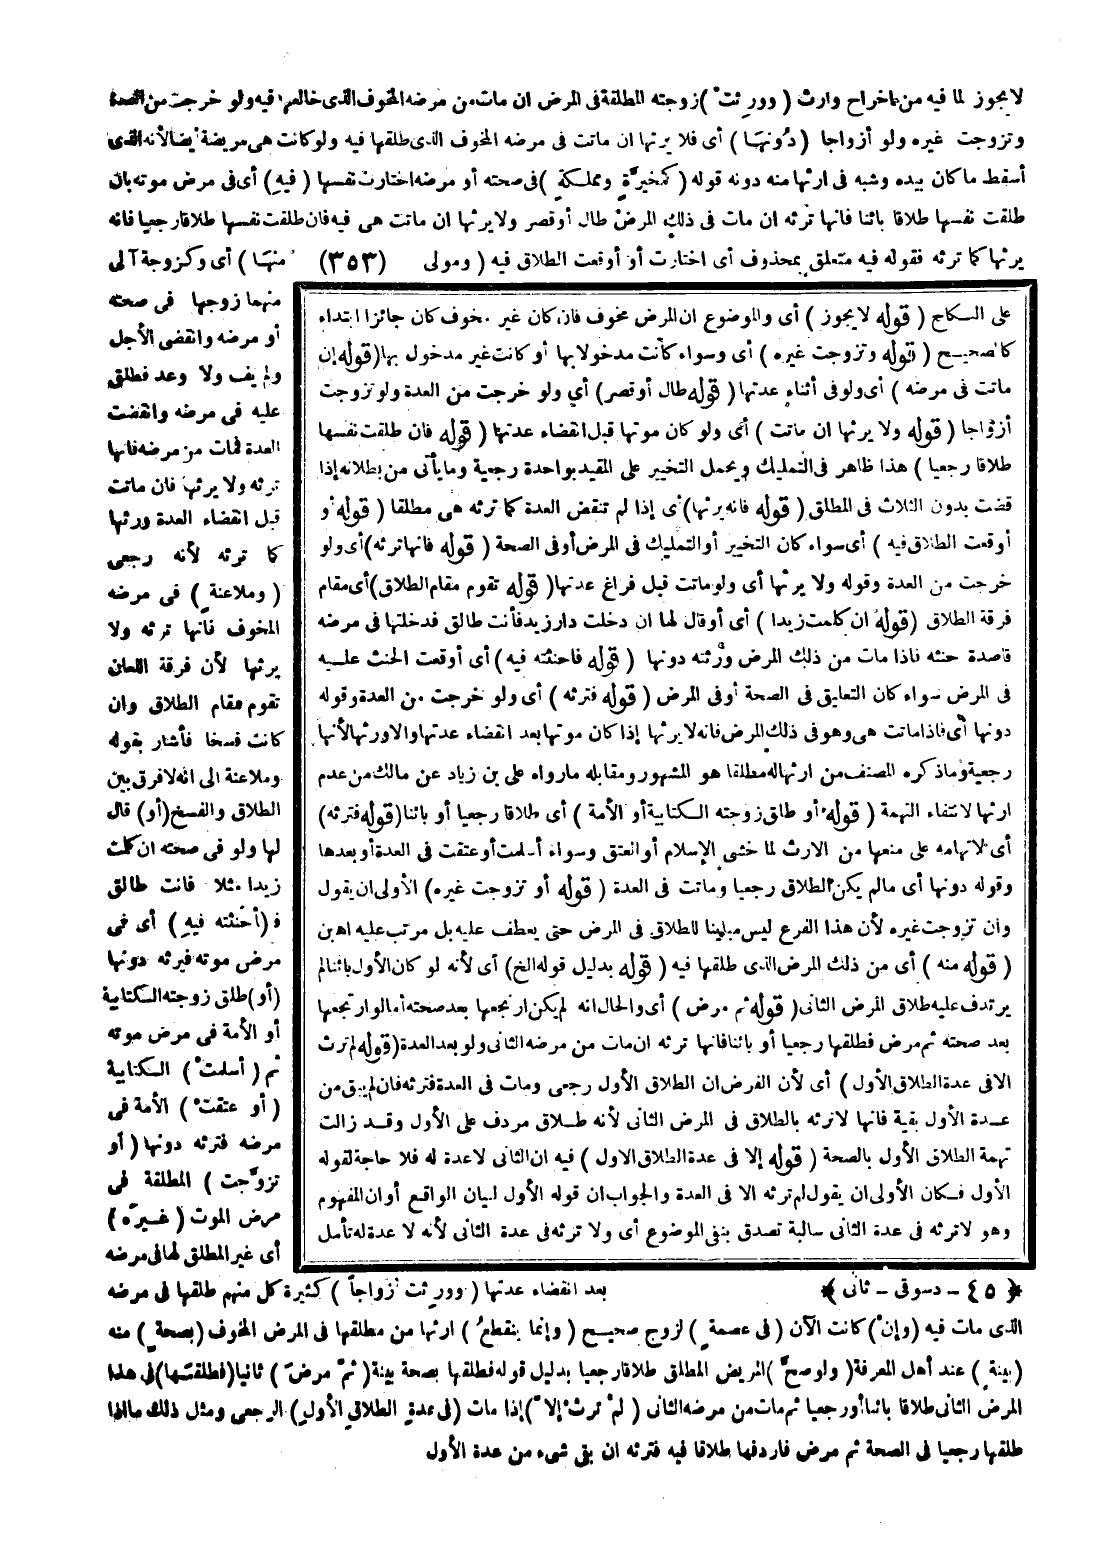 لا يجوز لما فيه من اخراج وارث ( وورثتْ ) زوجته المطلقة فى المرض ان مات من مرضه المخوف الذى خالعها فيه ولو خرجت من العدة
وتزوجت غيره ولو أزواجا ( دُونَهَا ) أى فلا يرثها ان ماتت فى مرضه المخوف الذى طلقها فيه ولو كانت هى مريضة أيضا لأنه الذى
أسقط ما كان بيده وشبه فى ارثها منه دونه قوله ( كمخيرَّةٍ ومملكةٍ ) فى صحته أو مرضه اختارت نفسها ( فيهِ ) أى فى مرض موته بان
طلقت نفسها طلاقا بائنا فانها ترثه ان مات فى ذلك المرض طال أو قصر ولا يرثها ان ماتت هى فيه فان طلقت نفسها طلاقا رجعيا فانه
يرثها كما ترثه فقوله فيه متعلق بمحذوف أى اختارت أو أوقعت الطلاق فيه ( ومولى (٣٥٣) منهَا ) أى وكزوجة آلى
منهما زوجها فى صحته
أو مرضه وانقضى الأجل
ولم يف ولا وعد فطلق
عليه فى مرضه وانقضت
العدة فمات من مرضه فانها
ترثه ولا يرثها فان ماتت
قبل انقضاء العدة ورثها
كما ترثه لأنه رجعى
( وملاعنةٍ ) فى مرضه
المخوف فانها ترثه ولا
يرثها لأن فرقة اللعان
تقوم مقام الطلاق وان
كانت فسخا فأشار بقوله
وملاعنة الى انه لا فرق بين
الطلاق والفسخ (أو) قال
لها ولو فى صحته ان كلمت
زيدا مثلا فانت طالق
فـ(أحنثته فيهِ ) أى فى
مرض موته فيرثه دونها
(أو) طلق زوجته الكتابية
أو الأمة فى مرض موته
ثم ( أسلمتْ ) الكتابية
( أو عتقتْ ) الأمة فى
مرضه فترثه دونها ( أو
تزوَّجت ) المطلقة فى
مرض الموت ( غيرَه )
أى غير المطلق لها فى مرضه
على النكاح ( قوله لا يجوز ) أى والموضوع ان المرض مخوف فان كان غير مخوف كان جائزا ابتداء
كالصحيح ( قوله وتزوجت غيره ) أى وسواء كانت مدخولا بها أو كانت غير مدخول بها (قوله إن
ماتت فى مرضه ) أى ولو فى أثناء عدتها ( قوله طال أو قصر) أي ولو خرجت من العدة ولو تزوجت
أزواجا ( قوله ولا يرثها ان ماتت ) أى ولو كان موتها قبل انقضاء عدتها ( قوله فان طلقت نفسها
طلاقا رجعيا ) هذا ظاهر فى التمليك ويحمل التخيير على المقيد بواحدة رجعية وما يأتى من بطلانه إذا
قضت بدون الثلاث فى المطلق ( قوله فانه يرثها) أى إذا لم تنقض العدة كما ترثه هى مطلقا ( قوله أو
أوقعت الطلاق فيه ) أى سواء كان التخيير أو التمليك فى المرض أو فى الصحة ( قوله فانها ترثه) أى ولو
خرجت من العدة وقوله ولا يرثها أى ولو ماتت قبل فراغ عدتها ( قوله تقوم مقام الطلاق) أى مقام
فرقة الطلاق (قوله ان كلمت زيدا ) أى أو قال لها ان دخلت دار زيد فأنت طالق فدخلتها فى مرضه
قاصدة حنثه فاذا مات من ذلك المرض ورثته دونها ( قوله فاحنثته فيه) أى أوقعت الحنث عليه
فى المرض سواء كان التعليق فى الصحة أو فى المرض ( قوله فترثه ) أى ولو خرجت من العدة وقوله
دونها أى فاذا ماتت هى وهو فى ذلك المرض فانه لا يرثها إذا كان موتها بعد انقضاء عدتها والا ورثها لأنها
رجعية وما ذكره المصنف من ارثها له مطلقا هو المشهور ومقابله ما رواه على بن زياد عن مالك من عدم
ارثها لانتفاء التهمة ( قوله أو طلق زوجته الكتابية أو الأمة ) أى طلاقا رجعيا أو بائنا (قوله فترثه)
أى لاتهامه على منعها من الارث لما خشى الإسلام أو العتق وسواء أسلمت أو عتقت فى العدة أو بعدها
وقوله دونها أى ما لم يكن الطلاق رجعيا وماتت فى العدة ( قوله أو تزوجت غيره) الأولى ان يقول
وان تزوجت غيره لأن هذا الفرع ليس مباينا للطلاق فى المرض حتى يعطف عليه بل مرتب عليه اه بن
( قوله منه ) أى من ذلك المرض الذى طلقها فيه ( قوله بدليل قوله الخ) أى لأنه لو كان الأول بائنا لم
يرتدف عليه طلاق المرض الثانى ( قوله ثم مرض ) أى والحال انه لم يكن ارتجعها بعد صحته أما لو ارتجعها
بعد صحته ثم مرض فطلقها رجعيا أو بائنا فانها ترثه ان مات من مرضه الثانى ولو بعد العدة (قوله لم ترث
الا فى عدة الطلاق الأول ) أى لأن الفرض ان الطلاق الأول رجعى ومات فى العدة فترثه فان لم يبق من
عدة الأول بقية فانها لا ترثه بالطلاق فى المرض الثانى لأنه طلاق مردف على الأول وقد زالت
تهمة الطلاق الأول بالصحة ( قوله إلا فى عدة الطلاق الاول ) فيه ان الثانى لا عدة له فلا حاجة لقوله
الأول فكان الأولى ان يقول لم ترثه الا فى العدة والجواب ان قوله الأول لبيان الواقع أو ان المفهوم
وهو لا ترثه فى عدة الثانى سالبة تصدق بنفى الموضوع أى ولا ترثه فى عدة الثانى لأنه لا عدة له تأمل
﴿ ٤٥ - دسوقى - ثانى ﴾ بعد انقضاء عدتها ( وورثت أزواجاً ) كثيرة كل منهم طلقها فى مرضه
الذى مات فيه (وإنْ) كانت الآن ( فى عصمةٍ ) لزوج صحيح ( وإنما ينقطعُ ) ارثها من مطلقها فى المرض المخوف ( بصحةٍ ) منه
( بينةٍ ) عند أهل المعرفة ( ولو صحَّ ) المريض المطلق طلاقا رجعيا بدليل قوله فطلقها بصحة بينة ( ثمّ مرضَ ) ثانيا (فطلقَها) فى هذا
المرض الثانى طلاقا بائنا أو رجعيا ثم مات من مرضه الثانى ( لمْ ترثْ إلا ) إذا مات ( فى عدةِ الطلاقِ الأولِ ) الرجعى ومثل ذلك ما اذا
طلقها رجعيا فى الصحة ثم مرض فاردفها طلاقا فيه فترثه ان بقى شىء من عدة الأول